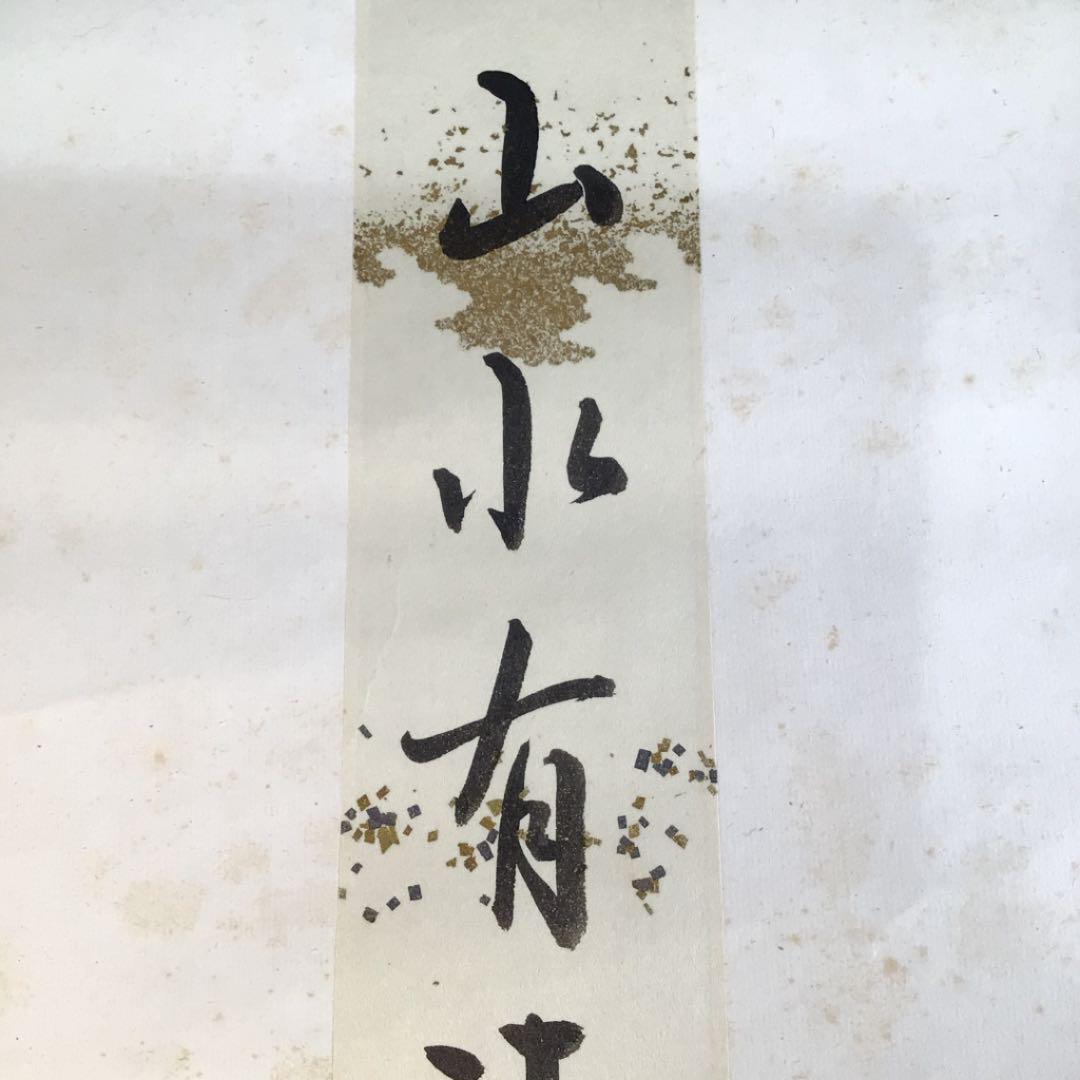 山水有